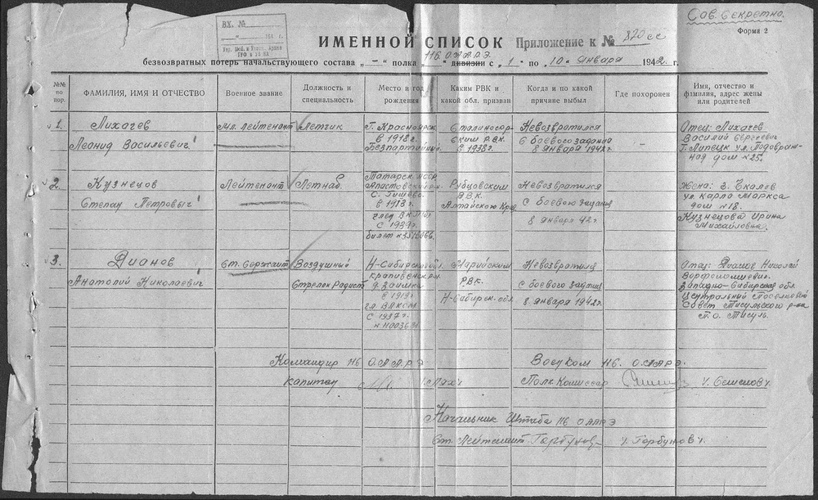 Сов. Секретно.
Форма 2
ВХ. №
ИМЕННОЙ СПИСОК Приложение к №
безвозвратных потерь начальствующего состава „ – “ полка 116 ОДАРЭ. дивизии с „ 1 “ по „ 10 “ января 1942 г.
№№ по пор.
ФАМИЛИЯ, ИМЯ И ОТЧЕСТВО
Военное звание
Должность и специальность
Место и год рождения
Каким РВК и какой обл. призван
Когда и по какой причине выбыл
Где похоронен
Имя, отчество и фамилия, адрес жены или родителей
1. Лихачев
Леонид Васильевич
Мл. лейтенант
Летчик
Г. Красноярск
в 1918 г.
Беспартийный
Сталинегор-
ским РВК.
С 1938 г.
Невозвратился
С боевого задания
8 января 1942 г.
–
Отец: Лихачев
Василий Сергеевич
Г. Липецк ул.
дом № 25.
2. Кузнецов
Степан Петрович
Лейтенант
Летнаб.
Татарск. АССР
в 1913 г.
С 1939 г.
билет №
Рубцовским
РВК.
Алтайского Края
Невозвратился
с боевого задания
8 января 42 г.
Жена: г. Чкалов
ул. Карла Маркса
дом № 18.
Кузнецова Ирина
Михайловна.
3. Дианов
Анатолий Николаевич
Ст. сержант
Воздушный
Стрелок Радист
Н-Сибирской обл.
Крапивенский р-н
в 1919 г.
чл. ВЛКСМ
С 1937 г.
РВК.
Н-Сибирск. обл
Невозвратился
с боевого задания
8 января 1942 г.
Отец: Дианов Николай
Западно-Сибирская обл.
Центральный Поселковый
Совет Тисульского р-на
п.о. Тисуль.
Командир 116 ОДАРЭ
капитан
Военком 116. ОДАРЭ.
Полк Комиссар
/. Семенов /.
Начальник Штаба 116 ОДАРЭ
Ст. Лейтенант Горбунов /. Горбунов /.